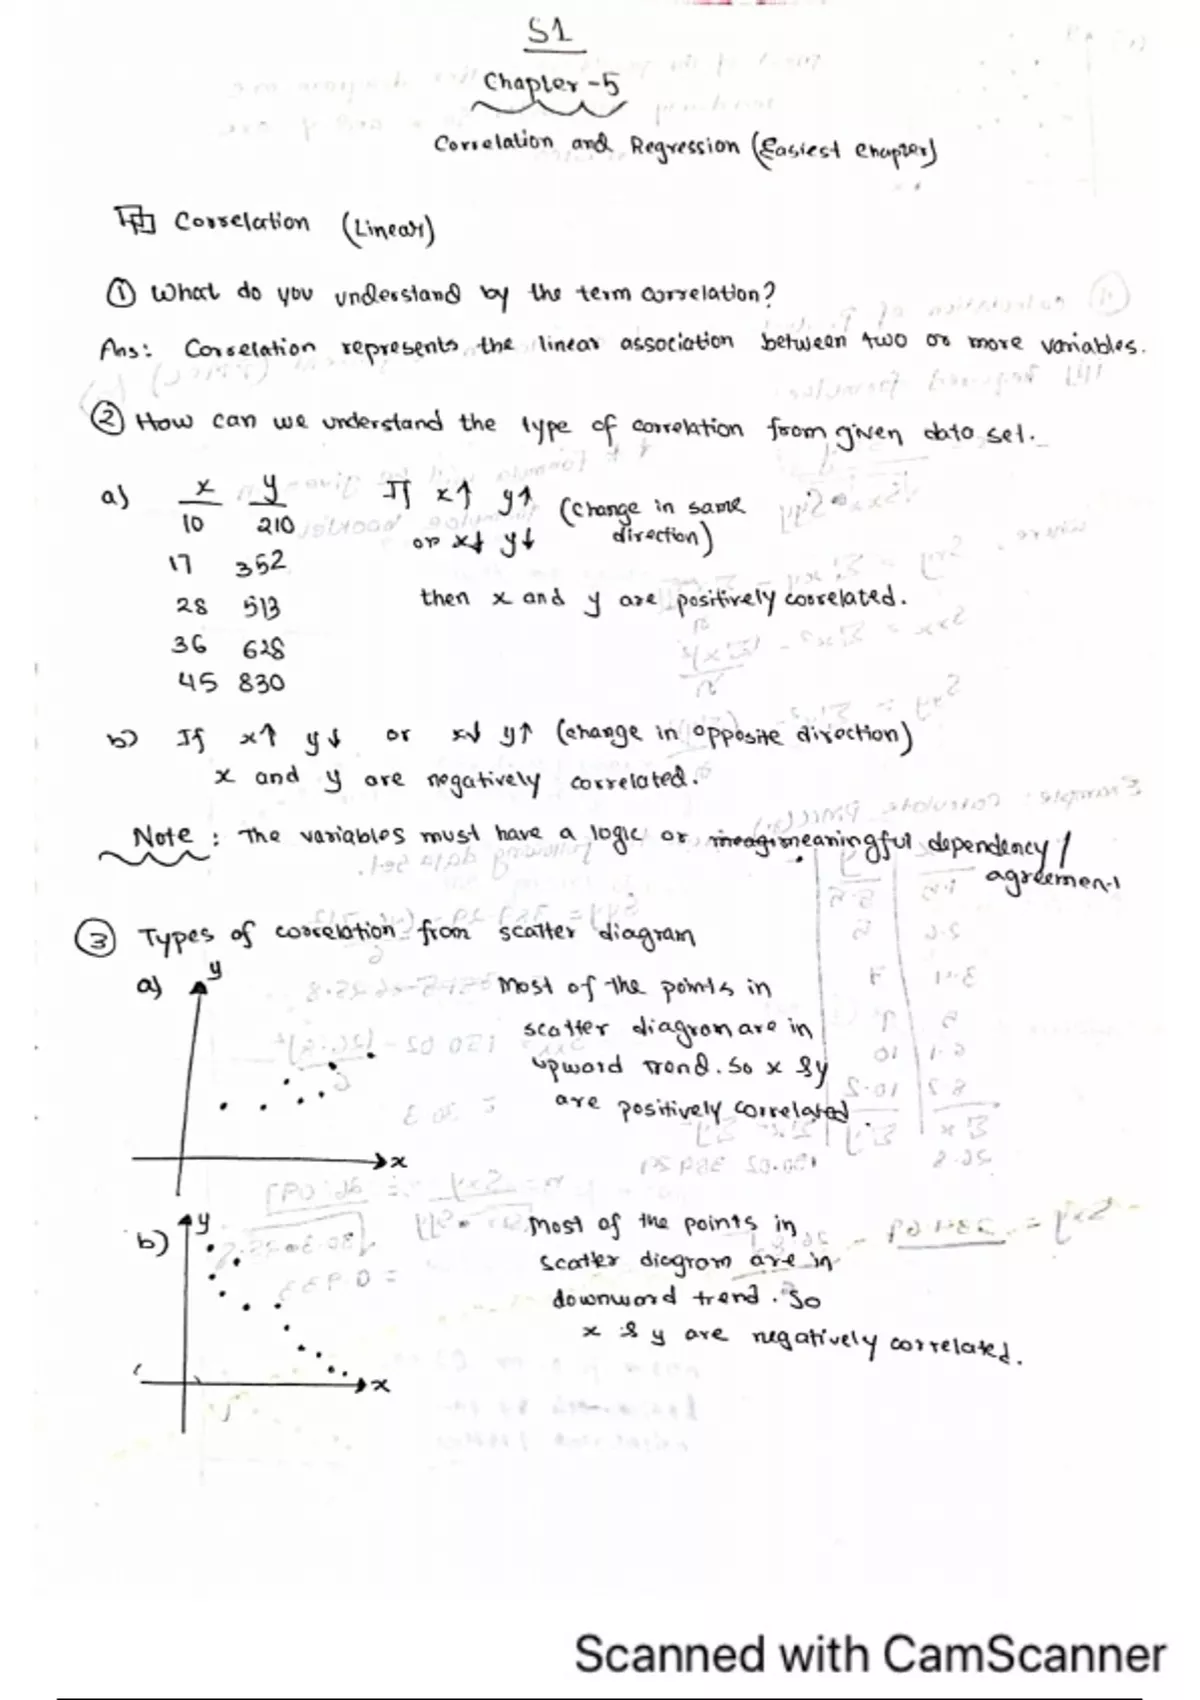 S1
Chapter-5
Correlation and Regression (Easiest chapter)
Correlation (Linear)
① What do you understand by the term correlation?
Ans: Correlation represents the linear association between two or more variables.
② How can we understand the type of correlation from given data set.
a) x y If x↑ y↑ (change in same
10 210 or x↓ y↓ direction)
17 352
28 513 then x and y are positively correlated.
36 628
45 830
b) If x↑ y↓ or x↓ y↑ (change in opposite direction)
x and y are negatively correlated.
Note: The variables must have a logic or meaningful dependency/
agreement
③ Types of correlation from scatter diagram
a) y Most of the points in
scatter diagram are in
upward trend. So x & y
are positively correlated.
x
b) y Most of the points in
scatter diagram are in
downward trend. So
x & y are negatively correlated.
x
Scanned with CamScanner